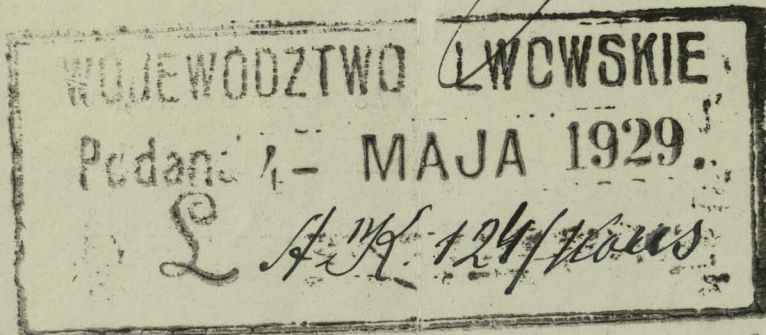 WOJEWÓDZTWO LWOWSKIE
Podano 4- MAJA 1929.
L A.K. 124/